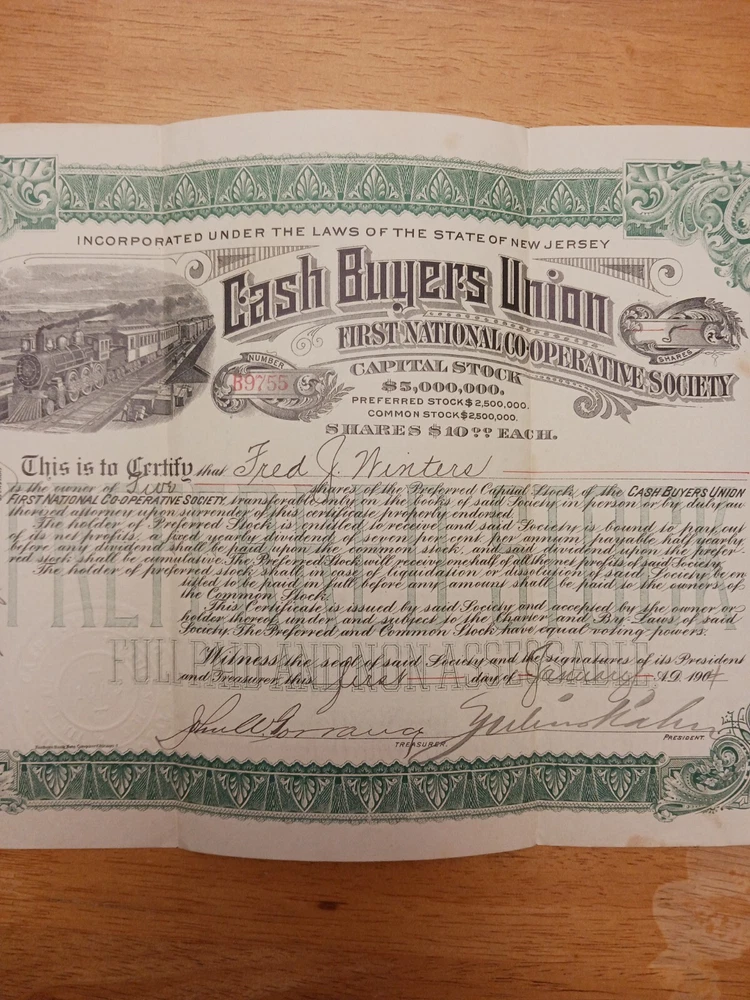 INCORPORATED UNDER THE LAWS OF THE STATE OF NEW JERSEY
Cash Buyers Union
FIRST NATIONAL CO-OPERATIVE SOCIETY
NUMBER
B9755
5
SHARES
CAPITAL STOCK
$5,000,000.
PREFERRED STOCK $2,500,000.
COMMON STOCK $2,500,000.
SHARES $10.00 EACH.
This is to Certify that Fred J. Winters
is the owner of Five shares of the Preferred Capital Stock of the CASH BUYERS UNION
FIRST NATIONAL CO-OPERATIVE SOCIETY, transferable only on the books of said Society in person or by duly au
thorized attorney upon surrender of this certificate properly endorsed.
The holder of Preferred Stock is entitled to receive and said Society is bound to pay out
of its net profits, a fixed yearly dividend of seven per cent. per annum, payable half yearly,
before any dividend shall be paid upon the common stock, and said dividend upon the prefer-
red stock shall be cumulative. The Preferred Stock will receive one half of all the net profits of said Society.
The holder of preferred stock shall in case of liquidation or dissolution of said Society be en
titled to be paid in full before any amount shall be paid to the owners of
the Common Stock.
This Certificate is issued by said Society and accepted by the owner or
holder thereof under and subject to the Charter and By-Laws of said
Society. The Preferred and Common Stock have equal voting powers.
FULL PAID AND NON ACCESSABLE
Witness the seal of said Society and the signatures of its President
and Treasurer, this first day of January A.D. 1904
Julius Kahn
TREASURER.
PRESIDENT.